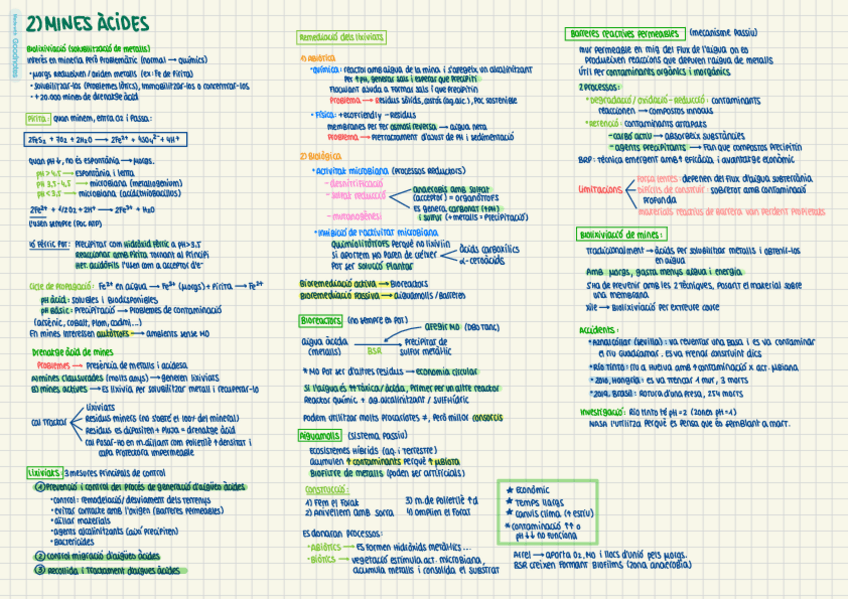 2) MINES ÀCIDES
Biolixiviació (solubilització de metalls)
Interès en mineria però problemàtic (normal → químics)
• μorgs redueixen / oxiden metalls (ex: Fe de Pirita)
• solubilitzar-los (Problemes tòxics), immobilitzar-los o concentrar-los
• +20.000 mines de drenatge àcid
Pirita: quan minem, entra O2 i passa:
2FeS2 + 7O2 + 2H2O → 2Fe2+ + 4SO4 2- + 4H+
quan pH↓, no és espontània → μorgs.
pH > 4,5 → espontània i lenta
pH 3,5-4,5 → microbiana (metallogenium)
pH < 3,5 → microbiana (acidithiobacillus)
2Fe2+ + 1/2 O2 + 2H+ → 2Fe3+ + H2O
L'usen sempre (poc ATP)
Ió fèrric pot: Precipitar com Hidròxid fèrric a pH>3,5
Reaccionar amb Pirita tornant al principi
Het. acidòfils l'usen com a acceptor d'e-
Cicle de Propagació: Fe3+ en aigua → Fe2+ (μorgs) + Pirita → Fe3+
pH àcid: solubles i biodisponibles
pH bàsic: Precipitació → Problemes de contaminació
(arsènic, cobalt, plom, cadmi...)
En mines interessen autòtrofs → ambients sense MO
Drenatge àcid de mines
Problemes → Presència de metalls i acidesa
A) mines clausurades (molts anys) → generen lixiviats
B) mines actives → Es lixivia per solubilitzar metall i recuperar-lo
Cal tractar
Lixiviats
Residus miners (no s'obté el 100% del mineral)
Residus es dipositen + Pluja = drenatge àcid
Cal posar-ho en m. aïllant com polietilè ↑ densitat i
capa protectora impermeable
Lixiviats: 3 mesures principals de control
① Prevenció i control del procés de generació d'drenatge àcides
• control: remodelació / desviament dels terrenys
• evitar contacte amb l'oxigen (Barreres permeables)
• aïllar materials
• agents alcalinitzants (així precipiten)
• Bactericides
② Control migració d'aigües àcides
③ Recollida i Tractament d'aigües àcides
Remediació dels lixiviats
1) Abiòtica
• Química: reactor amb aigua de la mina i s'afegeix un alcalinitzant
per ↑pH, generar sals i esperar que precipiti
Floculant ajuda a formar sals i que precipitin
Problema → Residus sòlids, costós (log. aic.), poc sostenible
• Física: +ecofriendly -Residus
membranes per fer osmosi reversa → aigua neta
Problema → Pretractament d'ajust de pH i sedimentació
2) Biològica
• Activitat microbiana (processos reductors)
- desnitrificació
- sulfat reducció
- metanogènesi
anaeròbis amb sulfat
(acceptor) = organòtrofs
Es genera carbonat (↑pH)
i sulfur (+metalls = Precipitació)
• Inhibició de l'activitat microbiana
Quimiolitòtrofs perquè no lixiviïn
Si aportem MO paren de créixer
Pot ser solució plantar
àcids carboxílics
α-cetoàcids
Bioremediació activa → Bioreactors
Bioremediació passiva → aiguamolls / Barreres
Bioreactors (no sempre es pot)
afegir MO (DBO tanc)
aigua àcida
(metalls)
BSR
Precipitat de
sulfur metàl·lic
* MO pot ser d'altres residus → economia circular
Si l'aigua és +tòxica / àcida, primer per un altre reactor
Reactor químic + ag. alcalinitzant / sulfhídric
Podem utilitzar molts procariotes ≠, però millor consorcis
Aiguamolls (sistema passiu)
Ecosistemes híbrids (aq. i terrestre)
acumulen ↑contaminants perquè ↑μbiota
Biofiltre de metalls (poden ser artificials)
Construcció:
1) Fem el forat
2) Anivellem amb sorra
3) m. de polietilè ↑d
4) omplim el forat
Es donaran processos:
• Abiòtics → es formen hidròxids metàl·lics...
• Biòtics → vegetació estimula act. microbiana,
acumula metalls i consolida el substrat
★ Econòmic
★ Temps llargs
★ Canvis clima (+estiu)
★ Contaminació ↑↑ o
pH ↓↓ no funciona
Arrel → aporta O2, MO i llocs d'unió pels μorgs.
BSR creixen formant biofilms (zona anaeròbia)
Barreres reactives permeables (mecanisme passiu)
mur permeable en mig del flux de l'aigua on es
produeixen reaccions que depuren l'aigua de metalls
Útil per contaminants orgànics i inorgànics
2 Processos:
• Degradació / Oxidació - Reducció: contaminants
reaccionen → compostos innocus
• Retenció: contaminants atrapats
- carbó actiu → absorbeix substàncies
- agents precipitants → fan que compostos precipitin
BRP: tècnica emergent amb ↑ eficàcia i avantatge econòmic
Limitacions
forta lentes: depenen del flux d'aigua subterrània
difícils de construir: sobretot amb contaminació
profunda
materials reactius de barrera van perdent propietats
Biolixiviació de mines:
Tradicionalment → àcids per solubilitzar metalls i obtenir-los
en aigua
Amb μorgs, gasta menys aigua i energia
S'ha de prevenir amb les 2 tècniques, posant el material sobre
una membrana
Xile → Biolixiviació per extreure coure
Accidents:
• Aznalcóllar (Sevilla): va rebentar una bassa i es va contaminar
el riu Guadiamar. Es va frenar construint dics
• Río Tinto: riu a Huelva amb ↑ contaminació x act. μbiana
• 2010, Hongria: es va trencar 1 mur, 3 morts
• 2019, Brasil: Rotura d'una presa, 254 morts
Investigació: Río Tinto té pH=2 (zones pH=1)
NASA l'utilitza perquè es pensa que és semblant a mart.